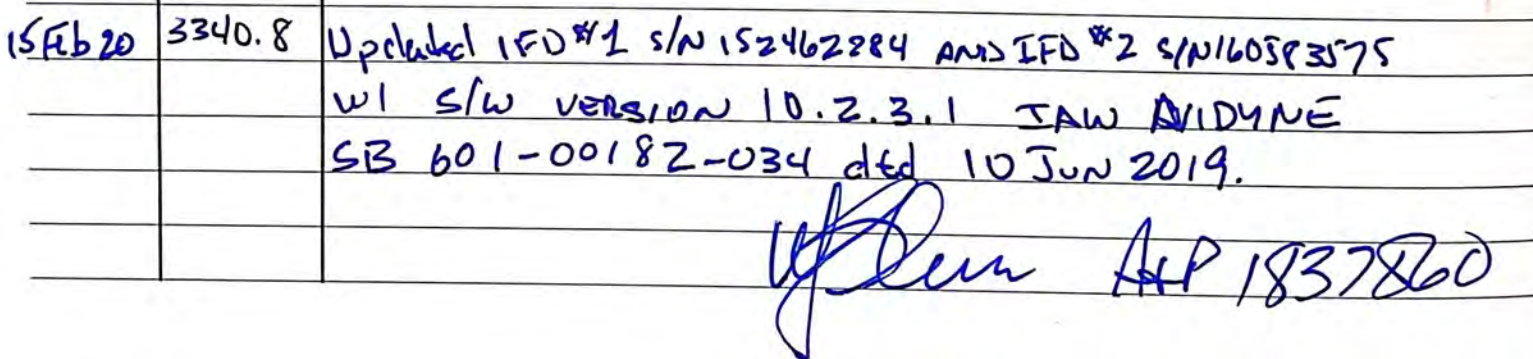 15 Feb 20 3340.8 Updated IFD #1 S/N 152462284 AND IFD #2 S/N 160583575
W/ S/W VERSION 10.2.3.1 IAW AVIDYNE
SB 601-00182-034 dtd 10 JUN 2019.
A&P 1837860